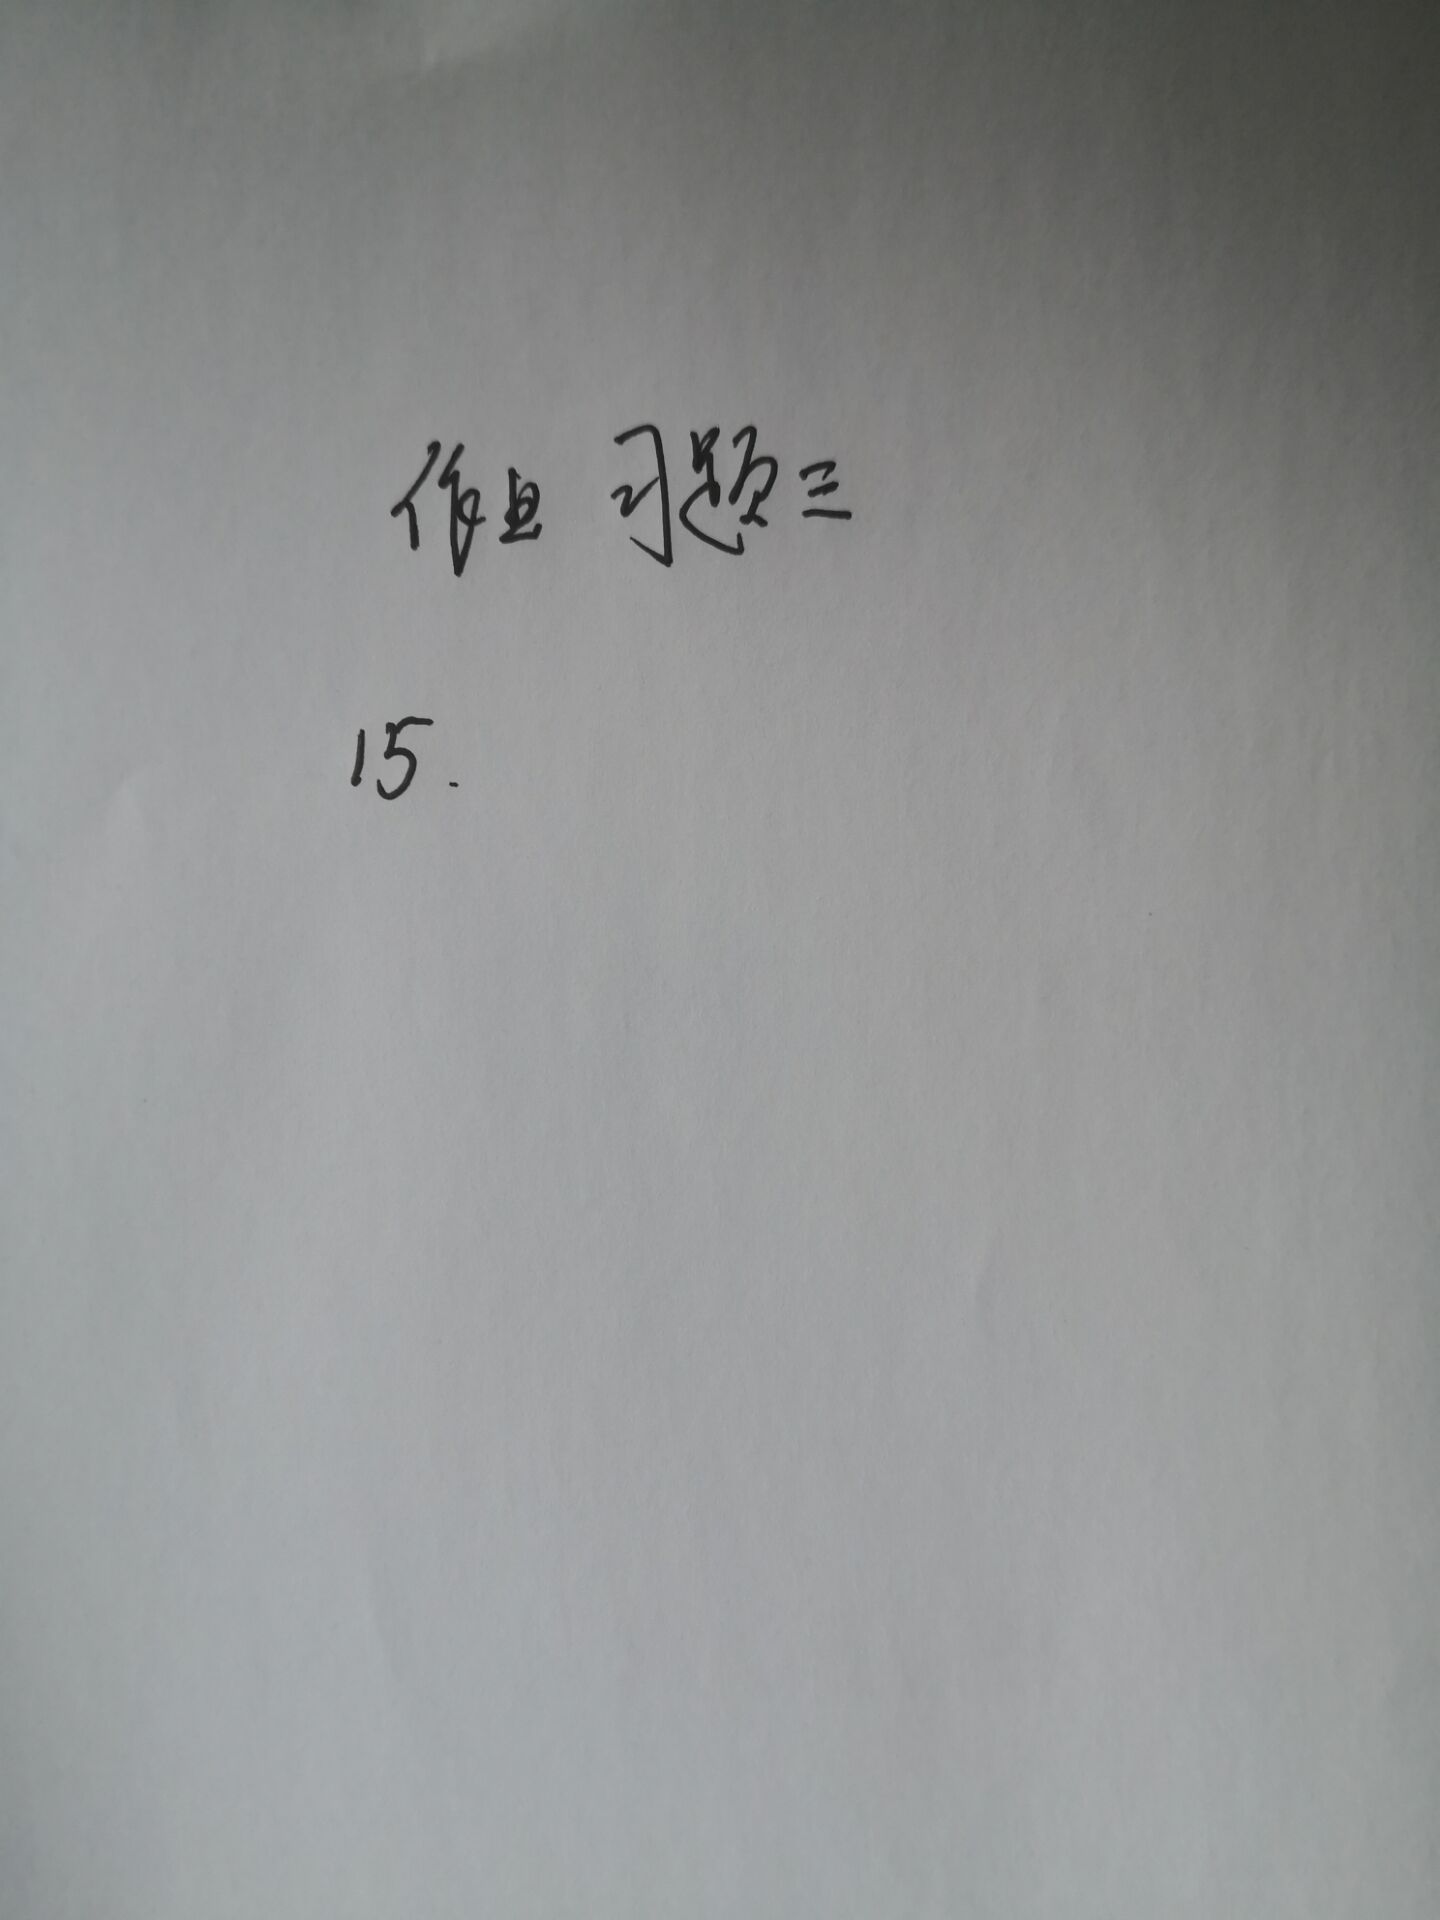 作业 习题三
15.